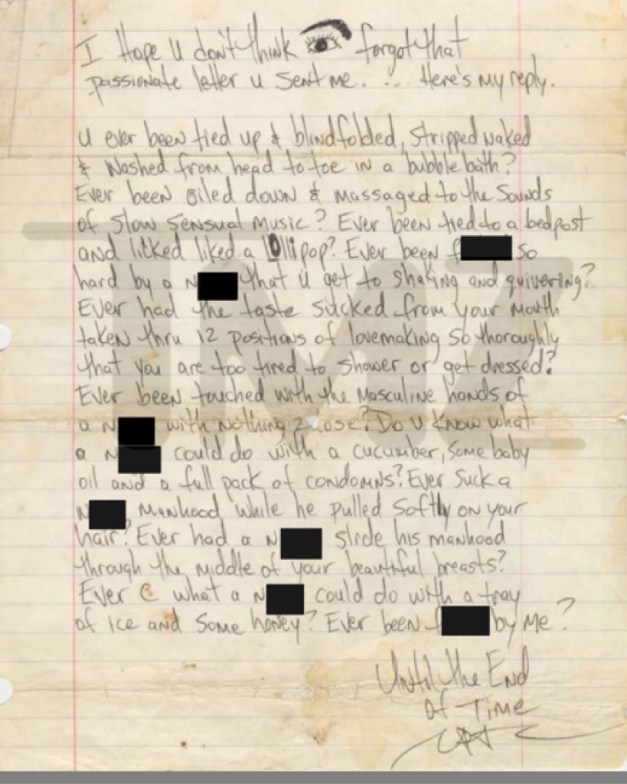 I Hope u don't think forgot that
passionate letter u sent me. ... Here's my reply.
u ever been tied up & blindfolded, stripped naked
& washed from head to toe in a bubble bath?
Ever been oiled down & massaged to the sounds
of slow sensual music? Ever been tied to a bedpost
and licked liked a lollipop? Ever been f so
hard by a N that u get to shaking and quivering?
Ever had the taste sucked from your mouth
taken thru 12 positions of lovemaking so thoroughly
that you are too tired to shower or get dressed?
Ever been touched with the masculine hands of
a N with nothing 2 lose? Do u know what
a N could do with a cucumber, some baby
oil and a full pack of condomns? Ever suck a
N manhood while he pulled softly on your
hair? Ever had a N slide his manhood
through the middle of your beautiful breasts?
Ever C what a N could do with a tray
of ice and some honey? Ever been f by me?
Until the End
of Time
TMZ